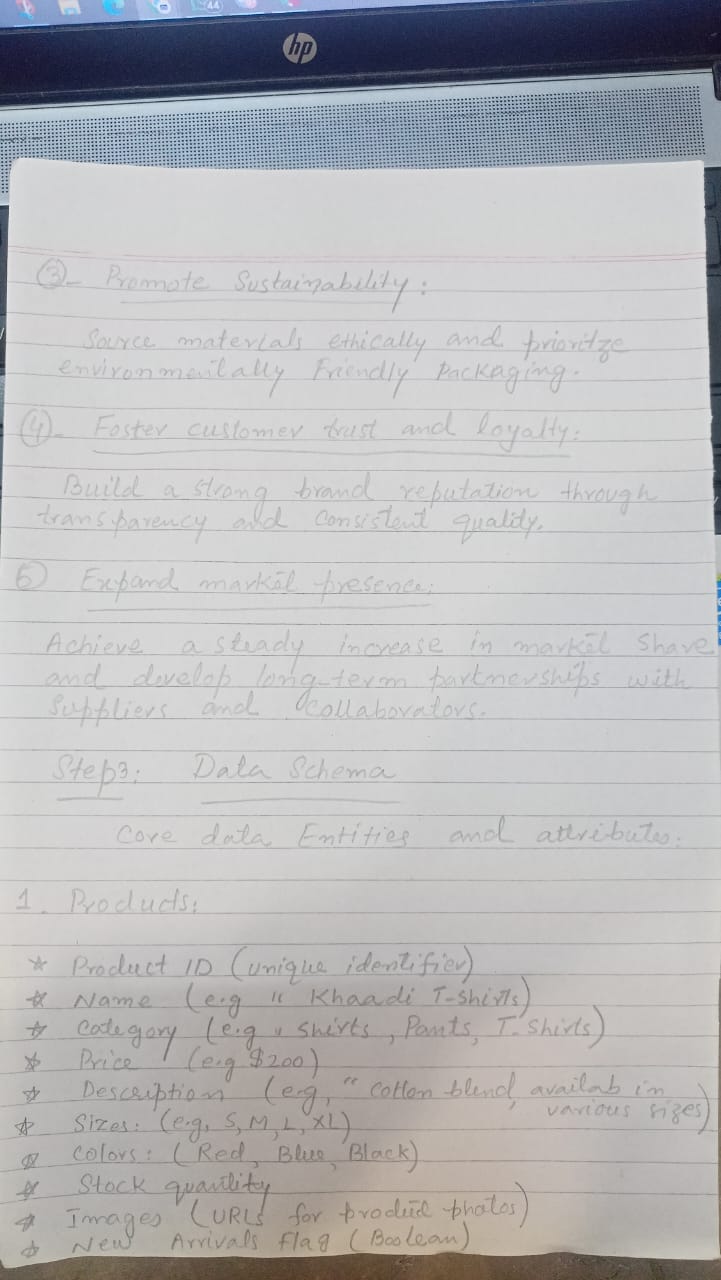 44
hp
③- Promote Sustainability:
Source materials ethically and prioritze
environmentally Friendly Packaging.
④- Foster customer trust and loyalty:
Build a strong brand reputation through
transparency and consistent quality.
⑤ Expand market presence:
Achieve a steady increase in market Share
and develop long-term partnerships with
Suppliers and collaborators.
Step3: Data Schema
Core data Entities and attributes:
1. Products:
☆ Product ID (unique identifier)
☆ Name (e.g " Khaadi T-Shirts)
☆ Category (e.g " Shirts, Pants, T-Shirts)
☆ Price (e.g $200)
☆ Description (e.g, " Cotton blend, availab in
various sizes)
☆ Sizes: (e.g, S, M, L, XL)
☆ Colors: (Red, Blue, Black)
☆ Stock quantity
☆ Images (URLs for product photos)
☆ New Arrivals Flag (Boolean)